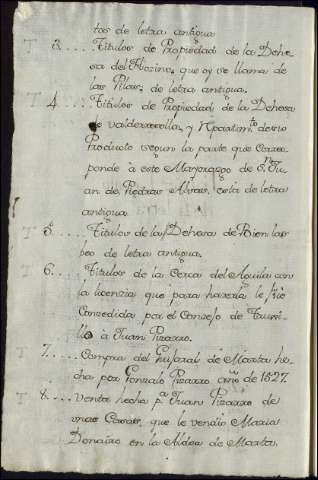 tos de letra antigua
T 3.... Titulos de Propiedad de la Dehe
sa del Hozino, que oy se llama de
las Pilas, de letra antigua.
T 4.... Titulos de Propiedad de la Dehesa
de y Repartim.to de su
Producto segun la parte que Corres
ponde à este Mayorazgo de S.n Ju
an de Piedras Albas, està de letra
antigua
T 5.... Titulos de la Dehesa de Bien las
peo de letra antigua.
T 6.... Titulos de la Cerca del Aguila con
la licenzia que para hazerla le fue
Concedida por el Consejo de Truxi
llo à Juan Pizarro.
T 7.... Compra del de Marta he
cha por Gonzalo Pizarro año de 1527.
T 8.... Venta hecha p.a Juan Pizarro de
unas Casas, que le vendio Maria
Donaire en la Aldea de Marta.